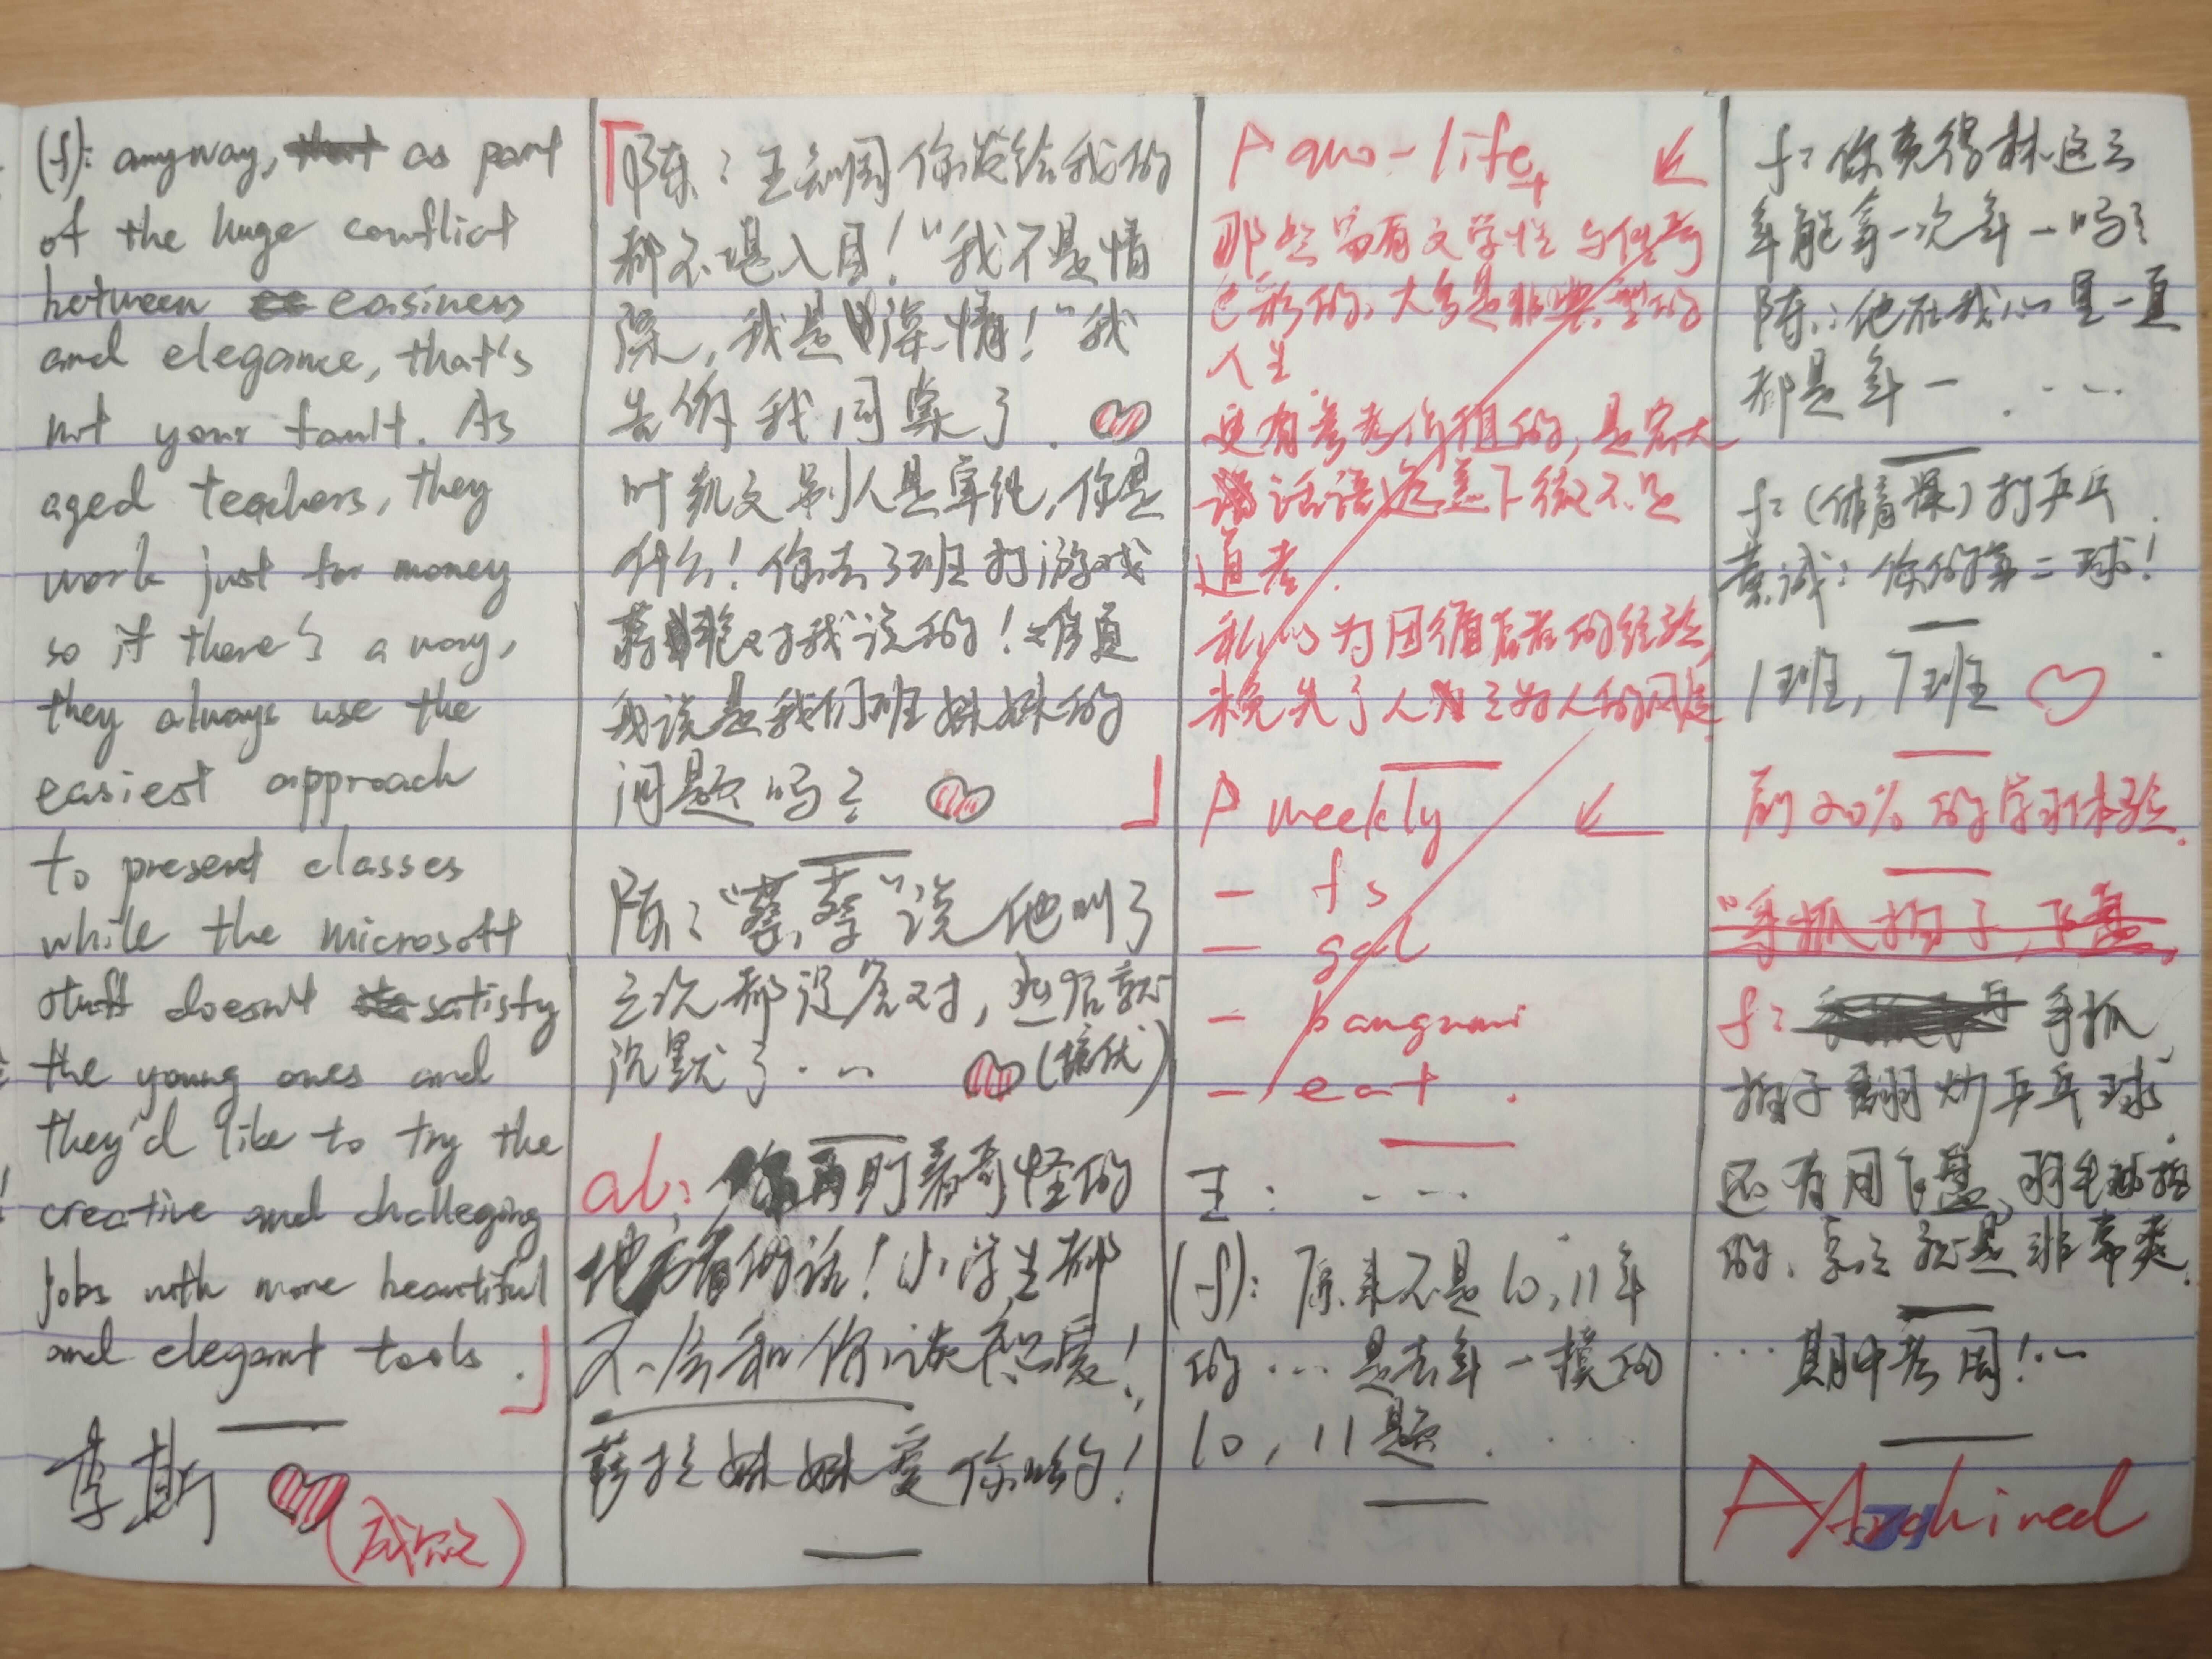 (f): anyway, as part
of the huge conflict
between easiness
and elegance, that's
not your fault. As
aged teachers, they
work just for money
so if there's a way,
they always use the
easiest approach
to present classes
while the microsoft
stuff doesn't satisfy
the young ones and
they'd like to try the
creative and challeging
jobs with more beautiful
and elegant tools.
李斯
陈：王 你发给我的
都不堪入目！“我不是情
深，我是深情！”我
告诉我同桌了.
叶凯文别人是单纯，你是
什么！你去3班打游戏
对我说的！难道
我该是我们班妹妹的
问题吗？
陈：“蔡蔡”说他叫了
三次都没答对，然后就
沉默了… (培优)
al: 你再盯着奇怪的
地方看的话！小学生都
不会和你谈恋爱！
萝拉妹妹爱你哟！
P ano-life
那些富有文学性与传奇
色彩的，大多是非典型的
人生
更有参考价值的，是宏大
话语 下微不足
道者.
私以为因循 的经验,
未免失了人 为人的
P weekly
- fs
- gal
- bangumi
- eat.
王：……
(f): 原来不是10,11年
的…是去年一模的
10, 11题……
f：你觉得林这三
年能拿一次年一吗？
陈：他在我心里一直
都是年一……
f：(体育课)打乒乓
诚：你的第二球！
1班，7班
前20%的学习体验.
“手抓拍子，下盘
f： 手抓
拍子翻炒乒乓球,
还有用飞盘,羽毛球拍
的，真 就是非常爽.
…期中考周！…
AArchived